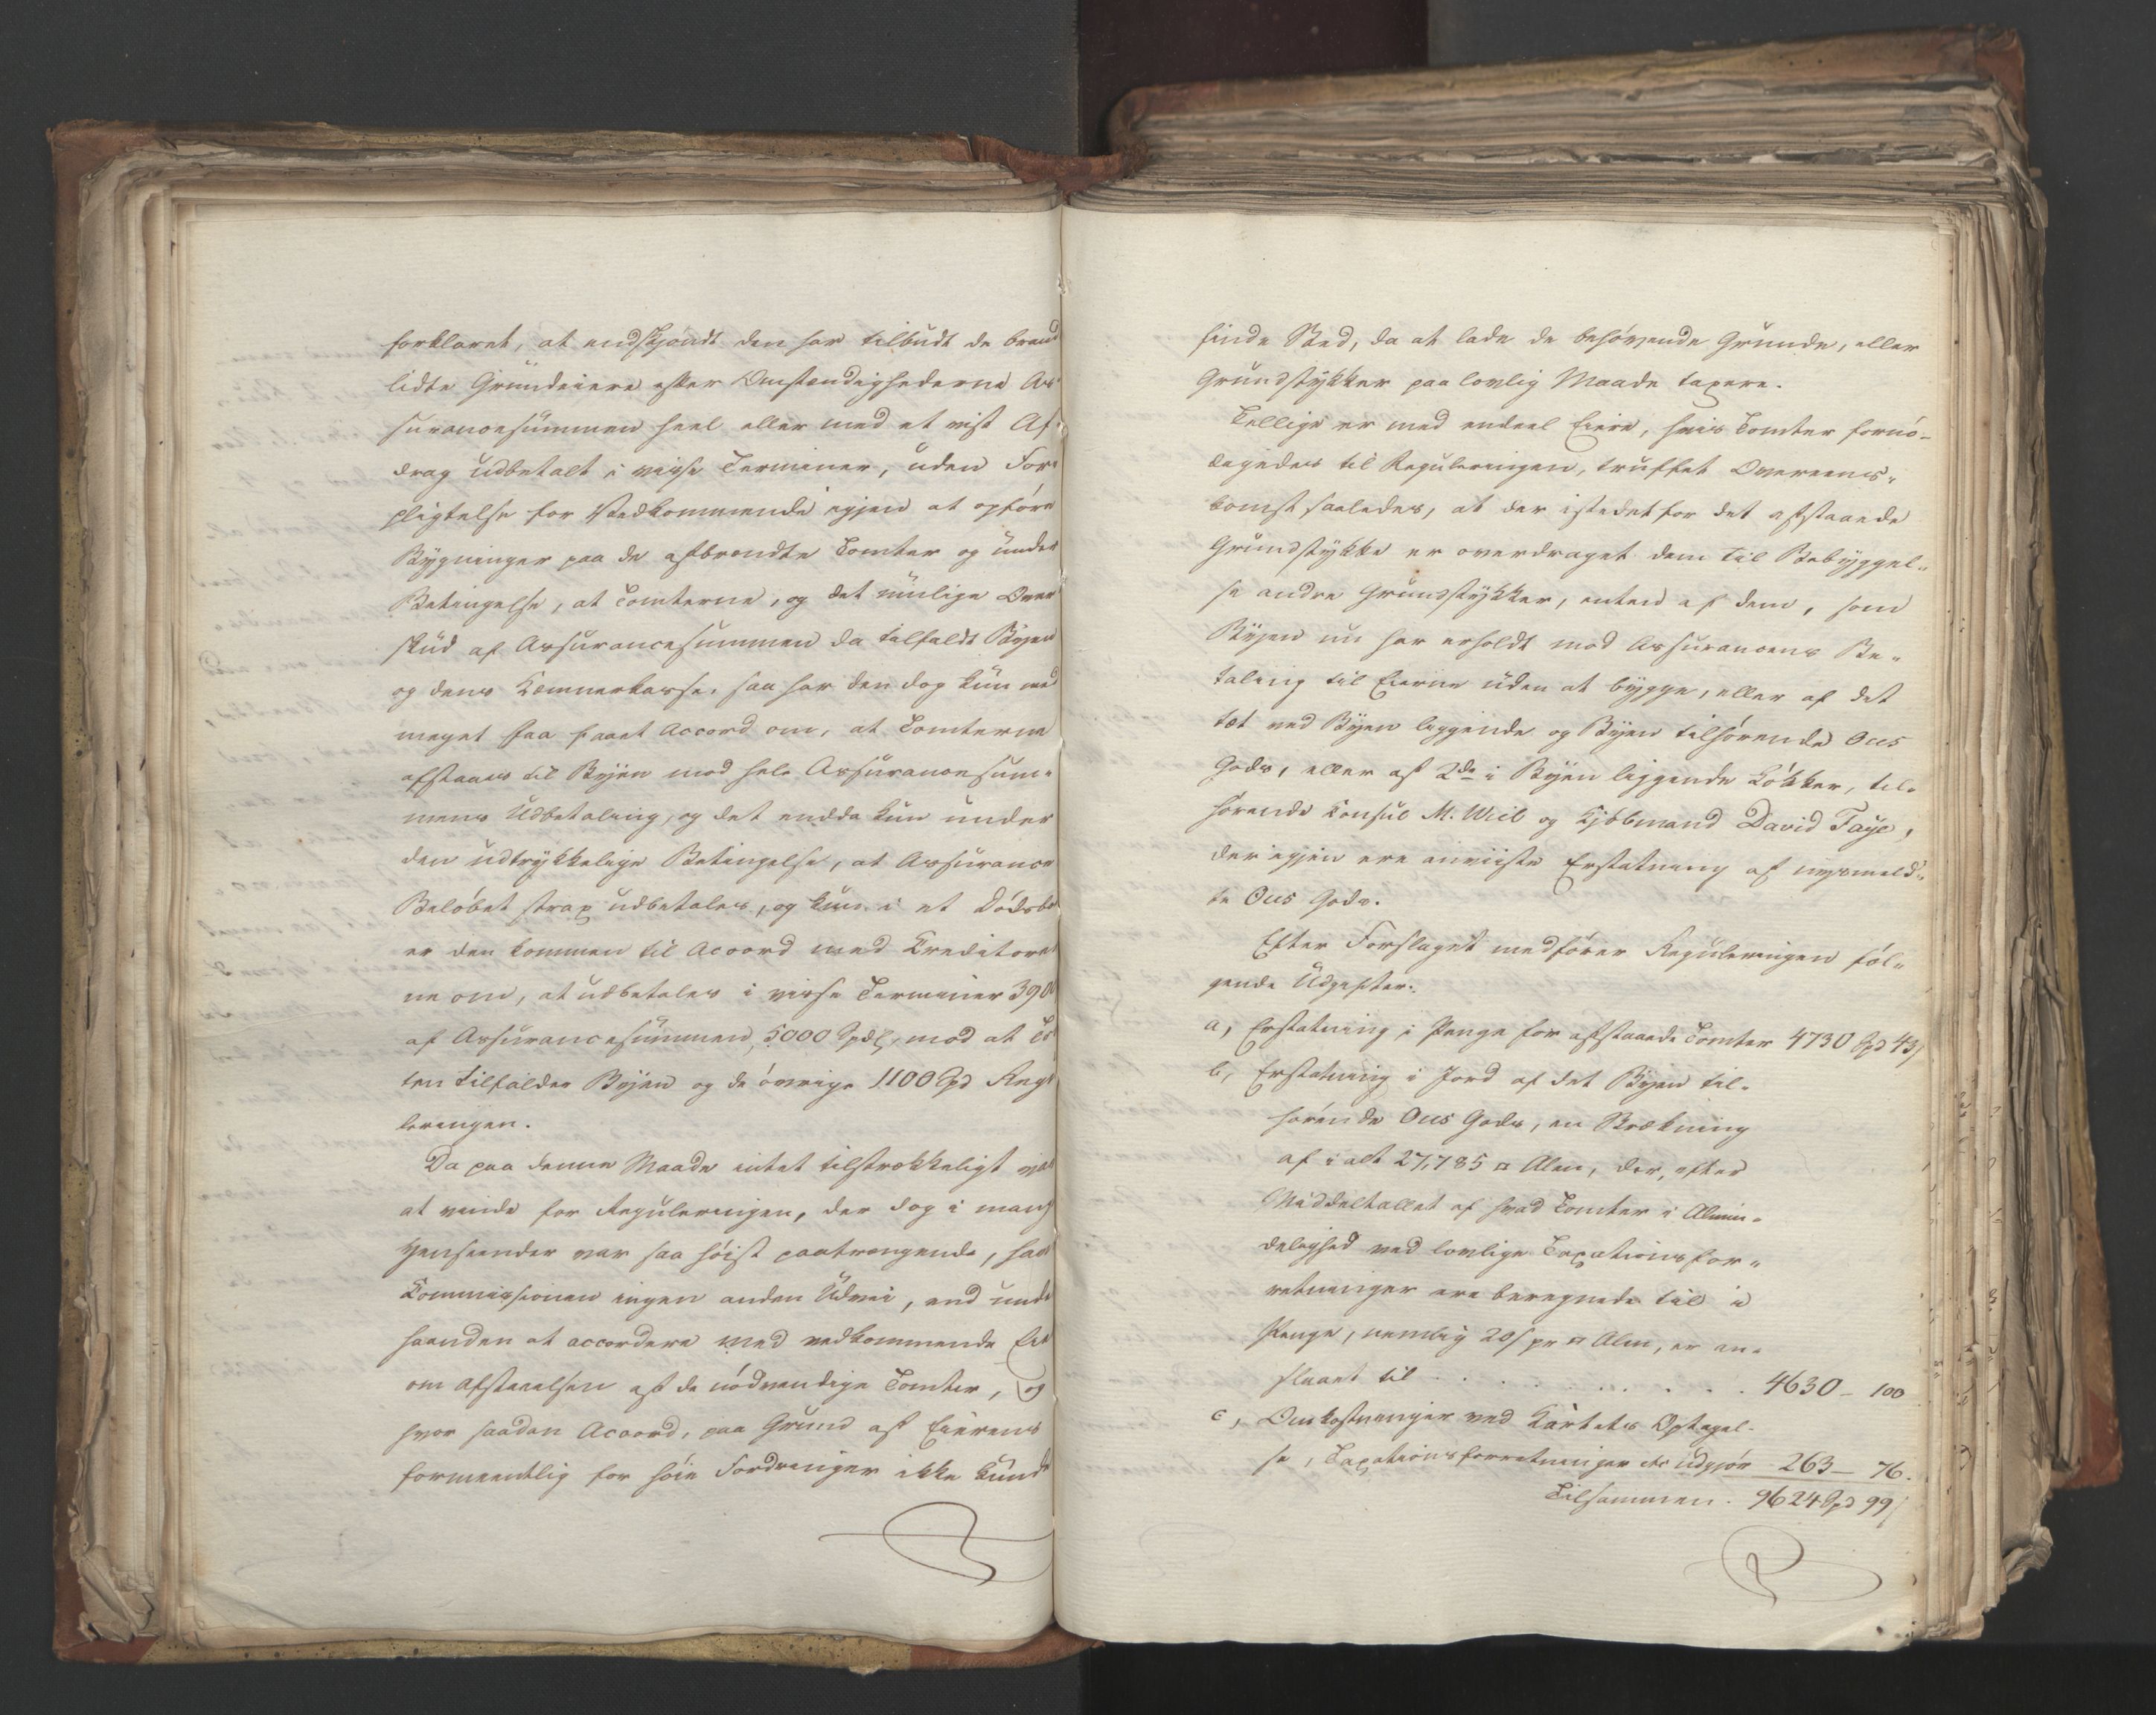 forklaret, at endskjøndt den har tilbudt de brand
lidte Grundeiere efter Omstændighederne As-
surancesummen heel eller med et vist Af-
drag udbetalt i visse Terminer, uden For-
pligtelse for Vedkommende igjen at opføre
Bygninger paa de afbrændte Tomter og under
Betingelse, at Tomterne, og det mulige Over
skud af Assurancesummen da tilfaldt Byen
og dens Kæmnerkasse, saa har den dog kun med
meget faa faaet Accord om, at Tomterne
afstaaes til Byen mod hele Assurancesum-
mens Udbetaling, og det endda kun under
den udtrykkelige Betingelse, at Assurance
Beløbet strax udbetales, og kun i et Dødsbo
er den kommen til Accord med Creditorer
ne om, at udbetales i visse Terminer 3900
af Assurancesummen, 5000 Spdl, mod at To
ten tilfalder Byen og de øvrige 1100 Spd Regu
leringen.
Da paa denne Maade intet tilstrækkeligt var
at vinde for Reguleringen, der dog i mange
Henseender var saa høist paatrængende, hav
Commissionen ingen anden Udvei, end unde
haanden at accordere med vedkommende Eie
om Afstaaelsen af de nødvendige Tomter, og
hvor saadan Accord, paa Grund af Eierens
formeentlig for høie Fordringer ikke kunde
finde Sted, da at lade de behøvende Grunde, eller
Grundstykker paa lovlig Maade taxere.
Tillige er med endeel Eiere, hvis Tomter fornø-
digedes til Reguleringen, truffet Overeens-
komst saaledes, at der istedetfor det afstaaede
Grundstykke er overdraget dem til Bebyggel-
se andre Grundstykker, enten af dem, som
Byen nu har erholdt mod Assurancens Be-
taling til Eierne uden at bygge, eller af det
tæt ved Byen liggende og Byen tilhørende Ous
Gods, eller af 2de i Byen liggende Løkker, til-
hørende Consul M. Wiel og Kjøbmand David Faye,
der igjen ere anviiste Erstatning af nysmeld-
te Ous Gods.
Efter Forslaget medfører Reguleringen føl-
gende Udgifter:
a, Erstatning i Penge for afstaaede Tomter 4730 Spd 43ß
b, Erstatning i Jord af det Byen til-
hørende Ous Gods, en Strækning
af i alt 27,785 □ Alen, der, efter
Middeltallet af hvad Tomter i Almin-
delighed ved lovlige Taxationsfor-
retninger ere beregnede til i
Penge, nemlig 20ß pr □ Alen, er an-
slaaet til . . . . . . . . . 4630 - 100
c, Omkostninger ved Kartets Optagel-
se, Taxationsforretninger etc udgjør 263 - 76.
Tilsammen. 9624 Spd 99ß